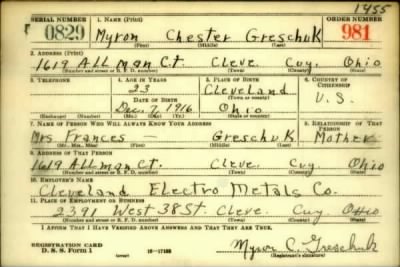 1455
SERIAL NUMBER 1. NAME (Print) ORDER NUMBER
0829 Myron Chester Greschuk 981
(First) (Middle) (Last)
2. ADDRESS (Print)
1619 Allman Ct. Cleve. Cuy. Ohio
(Number and street or R. F. D. number) (Town) (County) (State)
3. TELEPHONE 4. AGE IN YEARS 5. PLACE OF BIRTH 6. COUNTRY OF CITIZENSHIP
23 Cleveland
DATE OF BIRTH (Town or county)
Dec. 7, 1916 Ohio U.S.
(Mo.) (Day) (Yr.) (State or country)
7. NAME OF PERSON WHO WILL ALWAYS KNOW YOUR ADDRESS 8. RELATIONSHIP OF THAT PERSON
Mrs Frances Greschuk Mother
(Mr., Mrs., Miss) (First) (Middle) (Last)
9. ADDRESS OF THAT PERSON
1619 Allman Ct. Cleve. Cuy. Ohio
(Number and street or R. F. D. number) (Town) (County) (State)
10. EMPLOYER'S NAME
Cleveland Electro Metals Co.
11. PLACE OF EMPLOYMENT OR BUSINESS
2391 West 38 St. Cleve. Cuy. Ohio
(Number and street or R. F. D. number) (Town) (County) (State)
I AFFIRM THAT I HAVE VERIFIED ABOVE ANSWERS AND THAT THEY ARE TRUE.
REGISTRATION CARD
D. S. S. Form 1 16-17105 Myron C. Greschuk
(Registrant's signature)